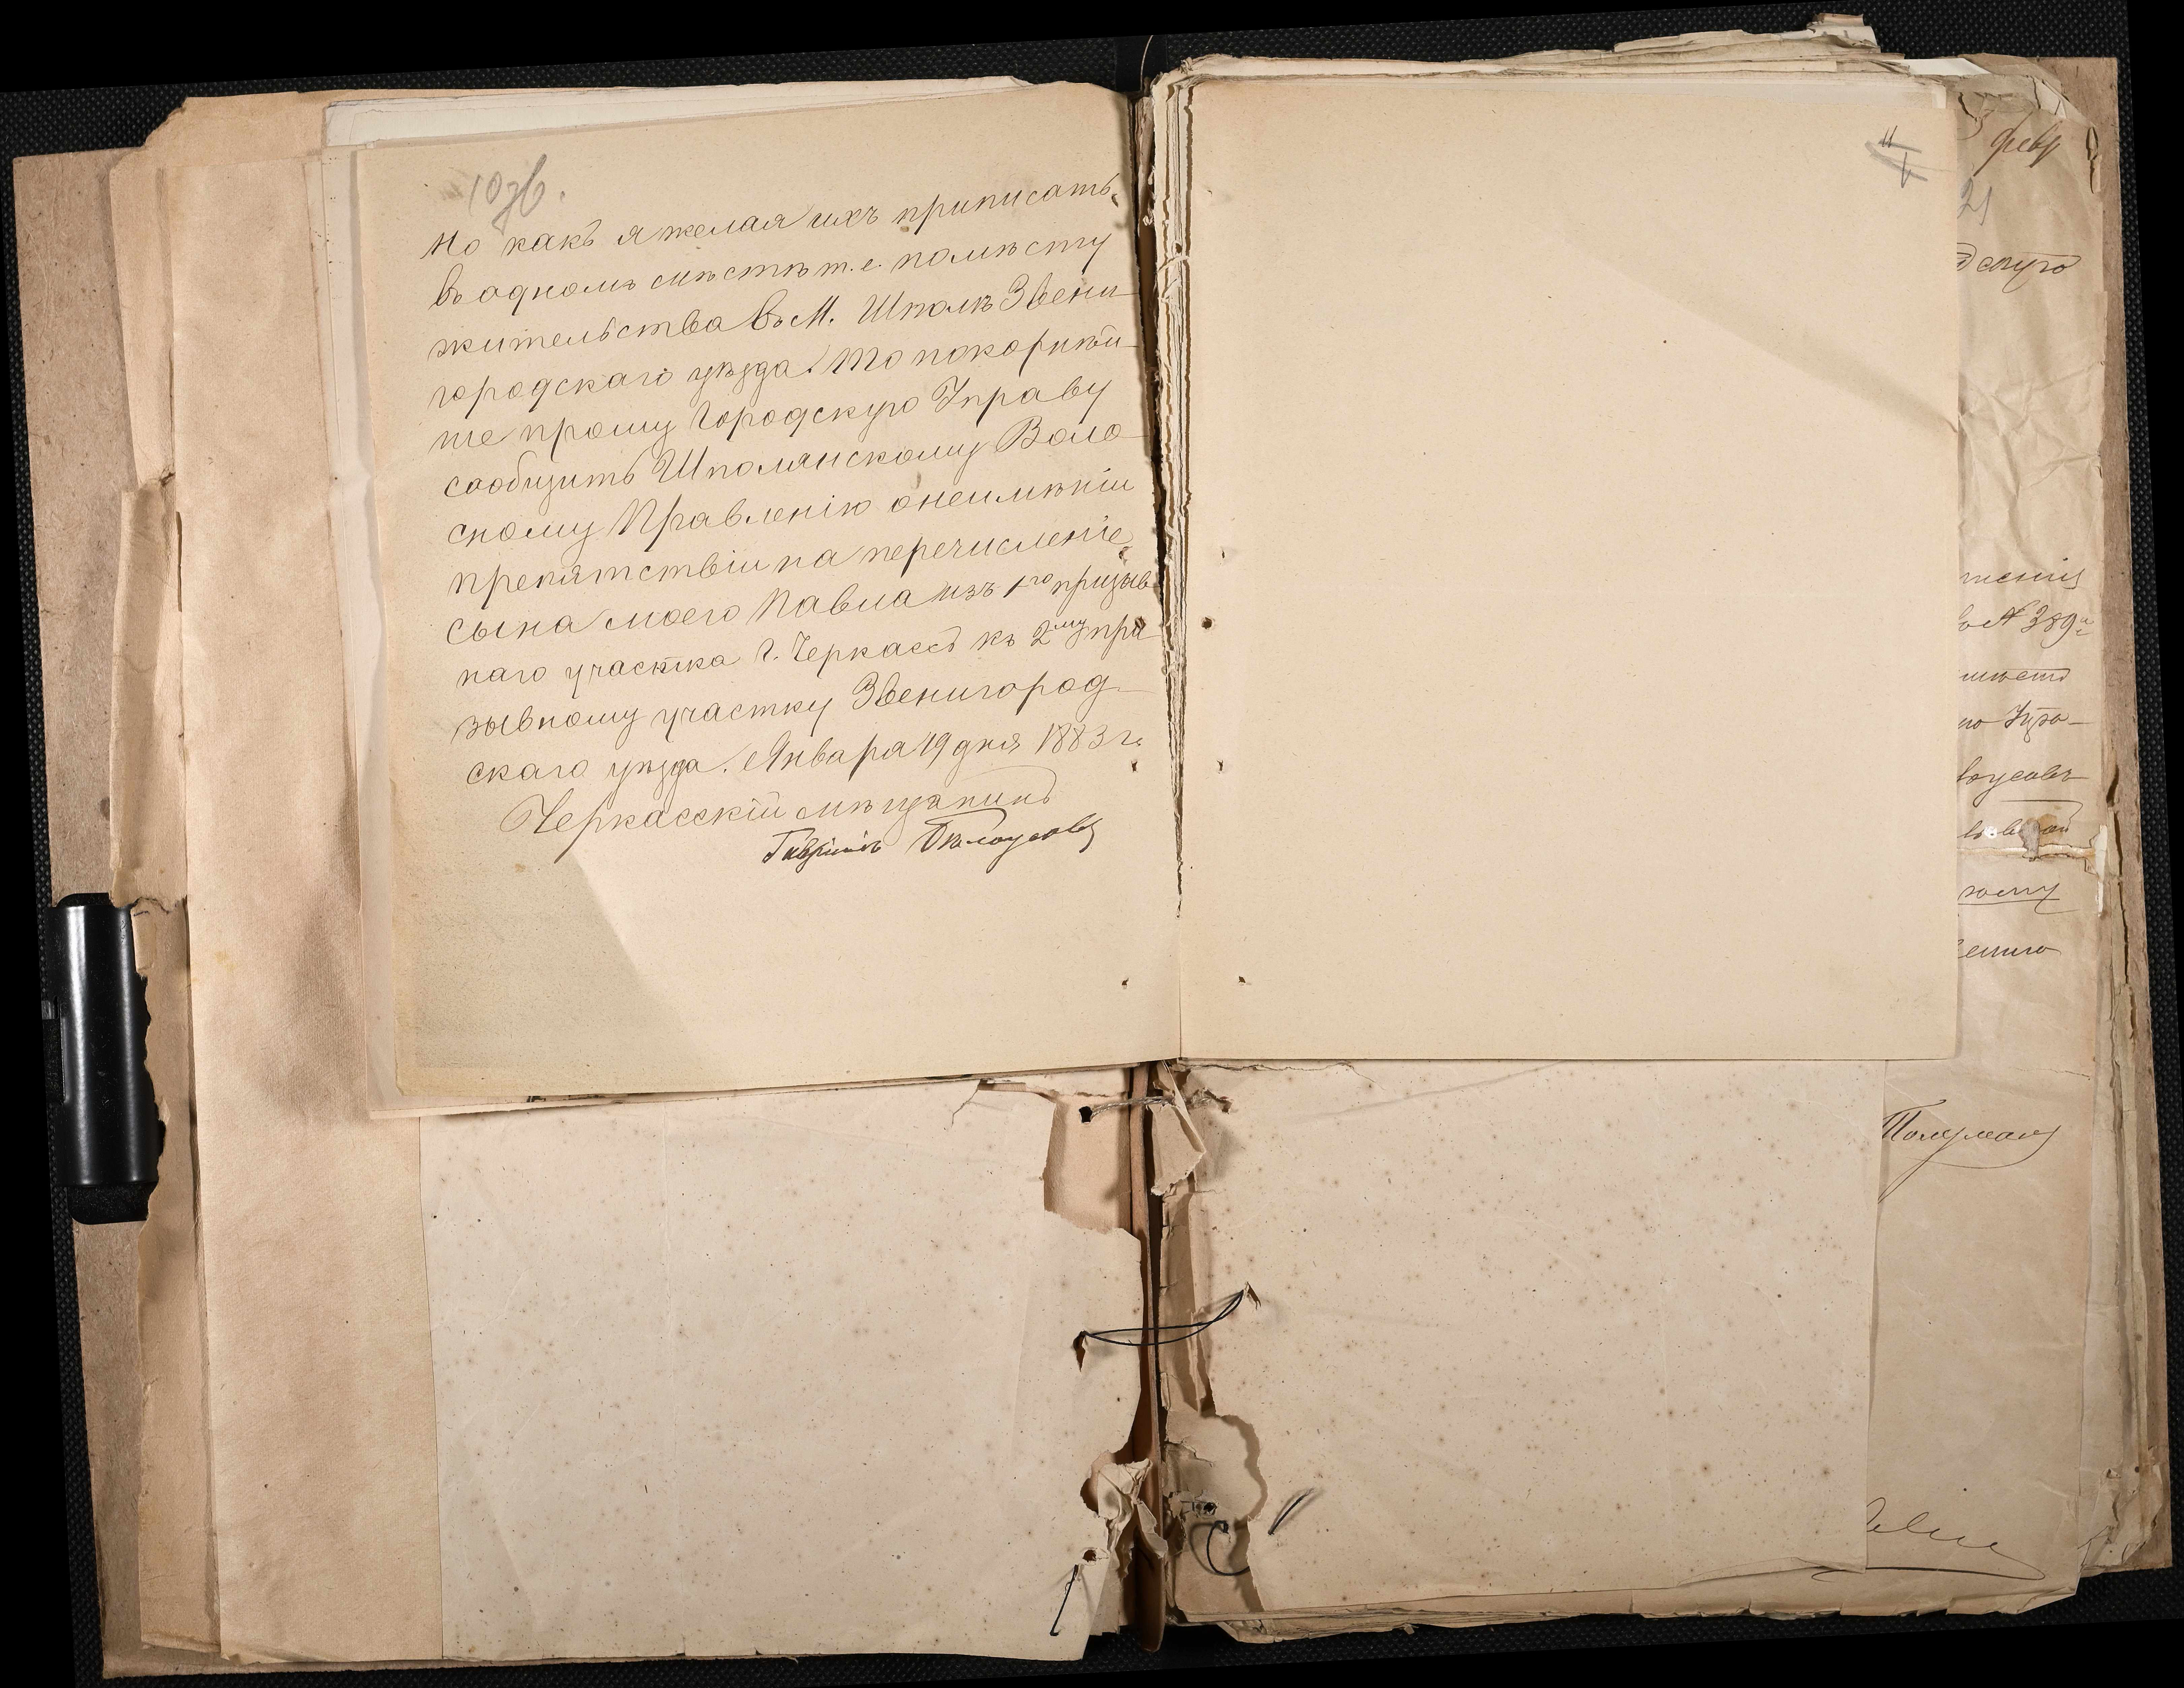 10 зв.
Но какъ я желая ихъ приписать
въ одномъ мѣстѣ т.е. по мѣсту
жительства въ М. Шполѣ Звени
городскаго уѣзда. То покорнѣй
ше прошу Городскую Управу
сообщить Шполянскому Воло
сному Правленію о неимѣніи
препятствіи на перечисленіе
сына моего Павла изъ 1го призыв
наго участка г. Черкасъ къ 2му при
зывному участку Звенигород
скаго уѣзда. Января 19 дня 1883 г.
Черкасскій мѣщанинъ
Гавріилъ Бѣлоусовъ
11
февр
21
№ 389